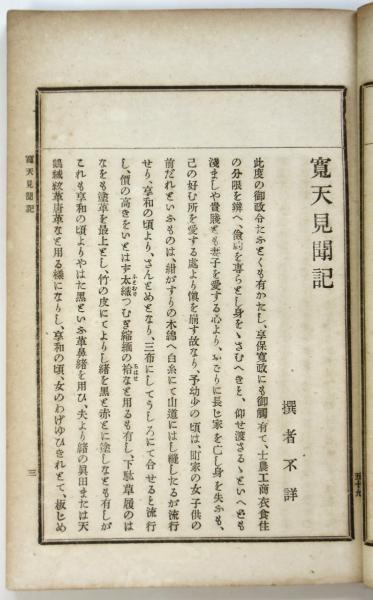 寛天見聞記
撰者不詳
此度の御政令たふとくも有かたし、享保寛政にも御觸有て、士農工商衣食住
の分限を辨へ、儉約を專らとし身を、さむへきと、仰せ渡さるゝといへとも
淺ましや貴賤とも妻子を愛する心より、おごりに長じ家を亡し身を失ふも、
己の好む所を愛する處より懷を崩す故なり、予幼少の頃は、町家の女子供の
前だれといふものは、紺がすりの木綿へ白糸にて山道にはし縫したるが流行
せり、享和の頃より、さんとめとなり、三布にしてうしろにて合せると流行
し、價の高きをいとはず太織つむぎ縮緬の袷など用るも有し、下駄草履のは
なをも塗革を最上とし、竹の皮にてよりし緒を黒と赤とに塗しなとも有しが
これも享和の頃よりやはた黒といふ革鼻緒を用ひ、夫より緒の眞田または天
鵞絨紋革唐革など用る樣になりし、享和の頃、女のわげゆひきれとて、板じめ
ふとおり
あはせ
寛天見聞記
三
五十九